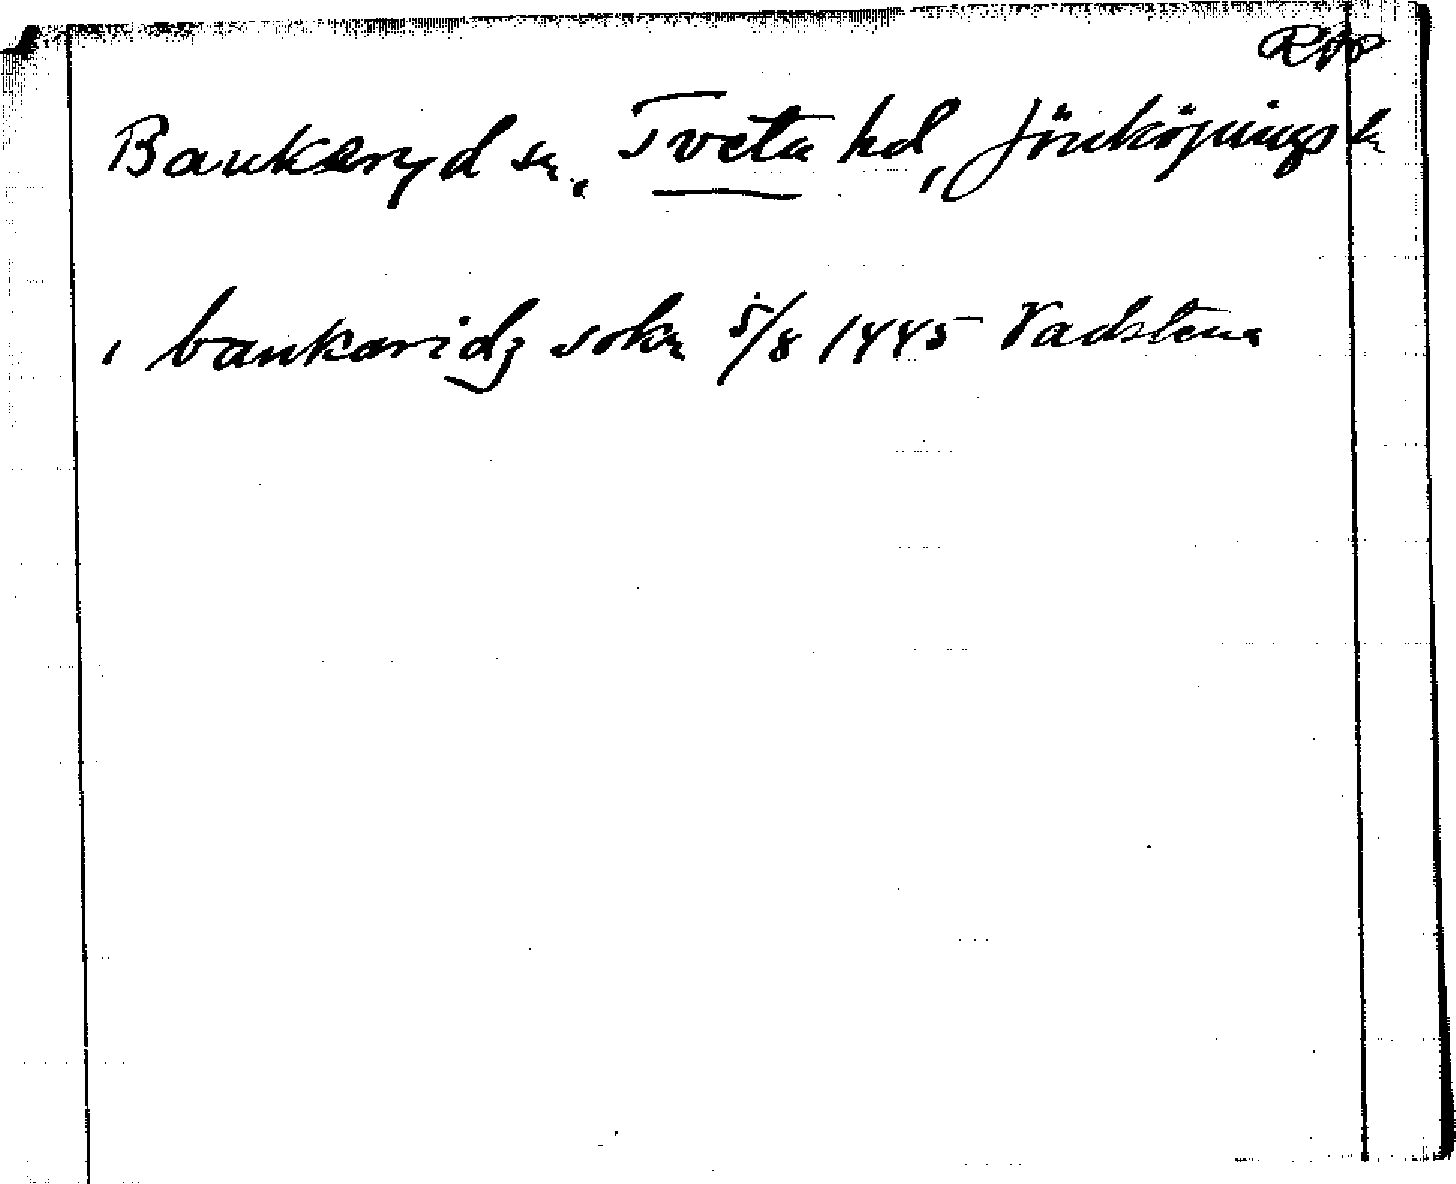 RAp
Bankeryd sn, Tveta hd, Jönköpings ln
i bankaridz sokn 5/8 1445 Vadstena